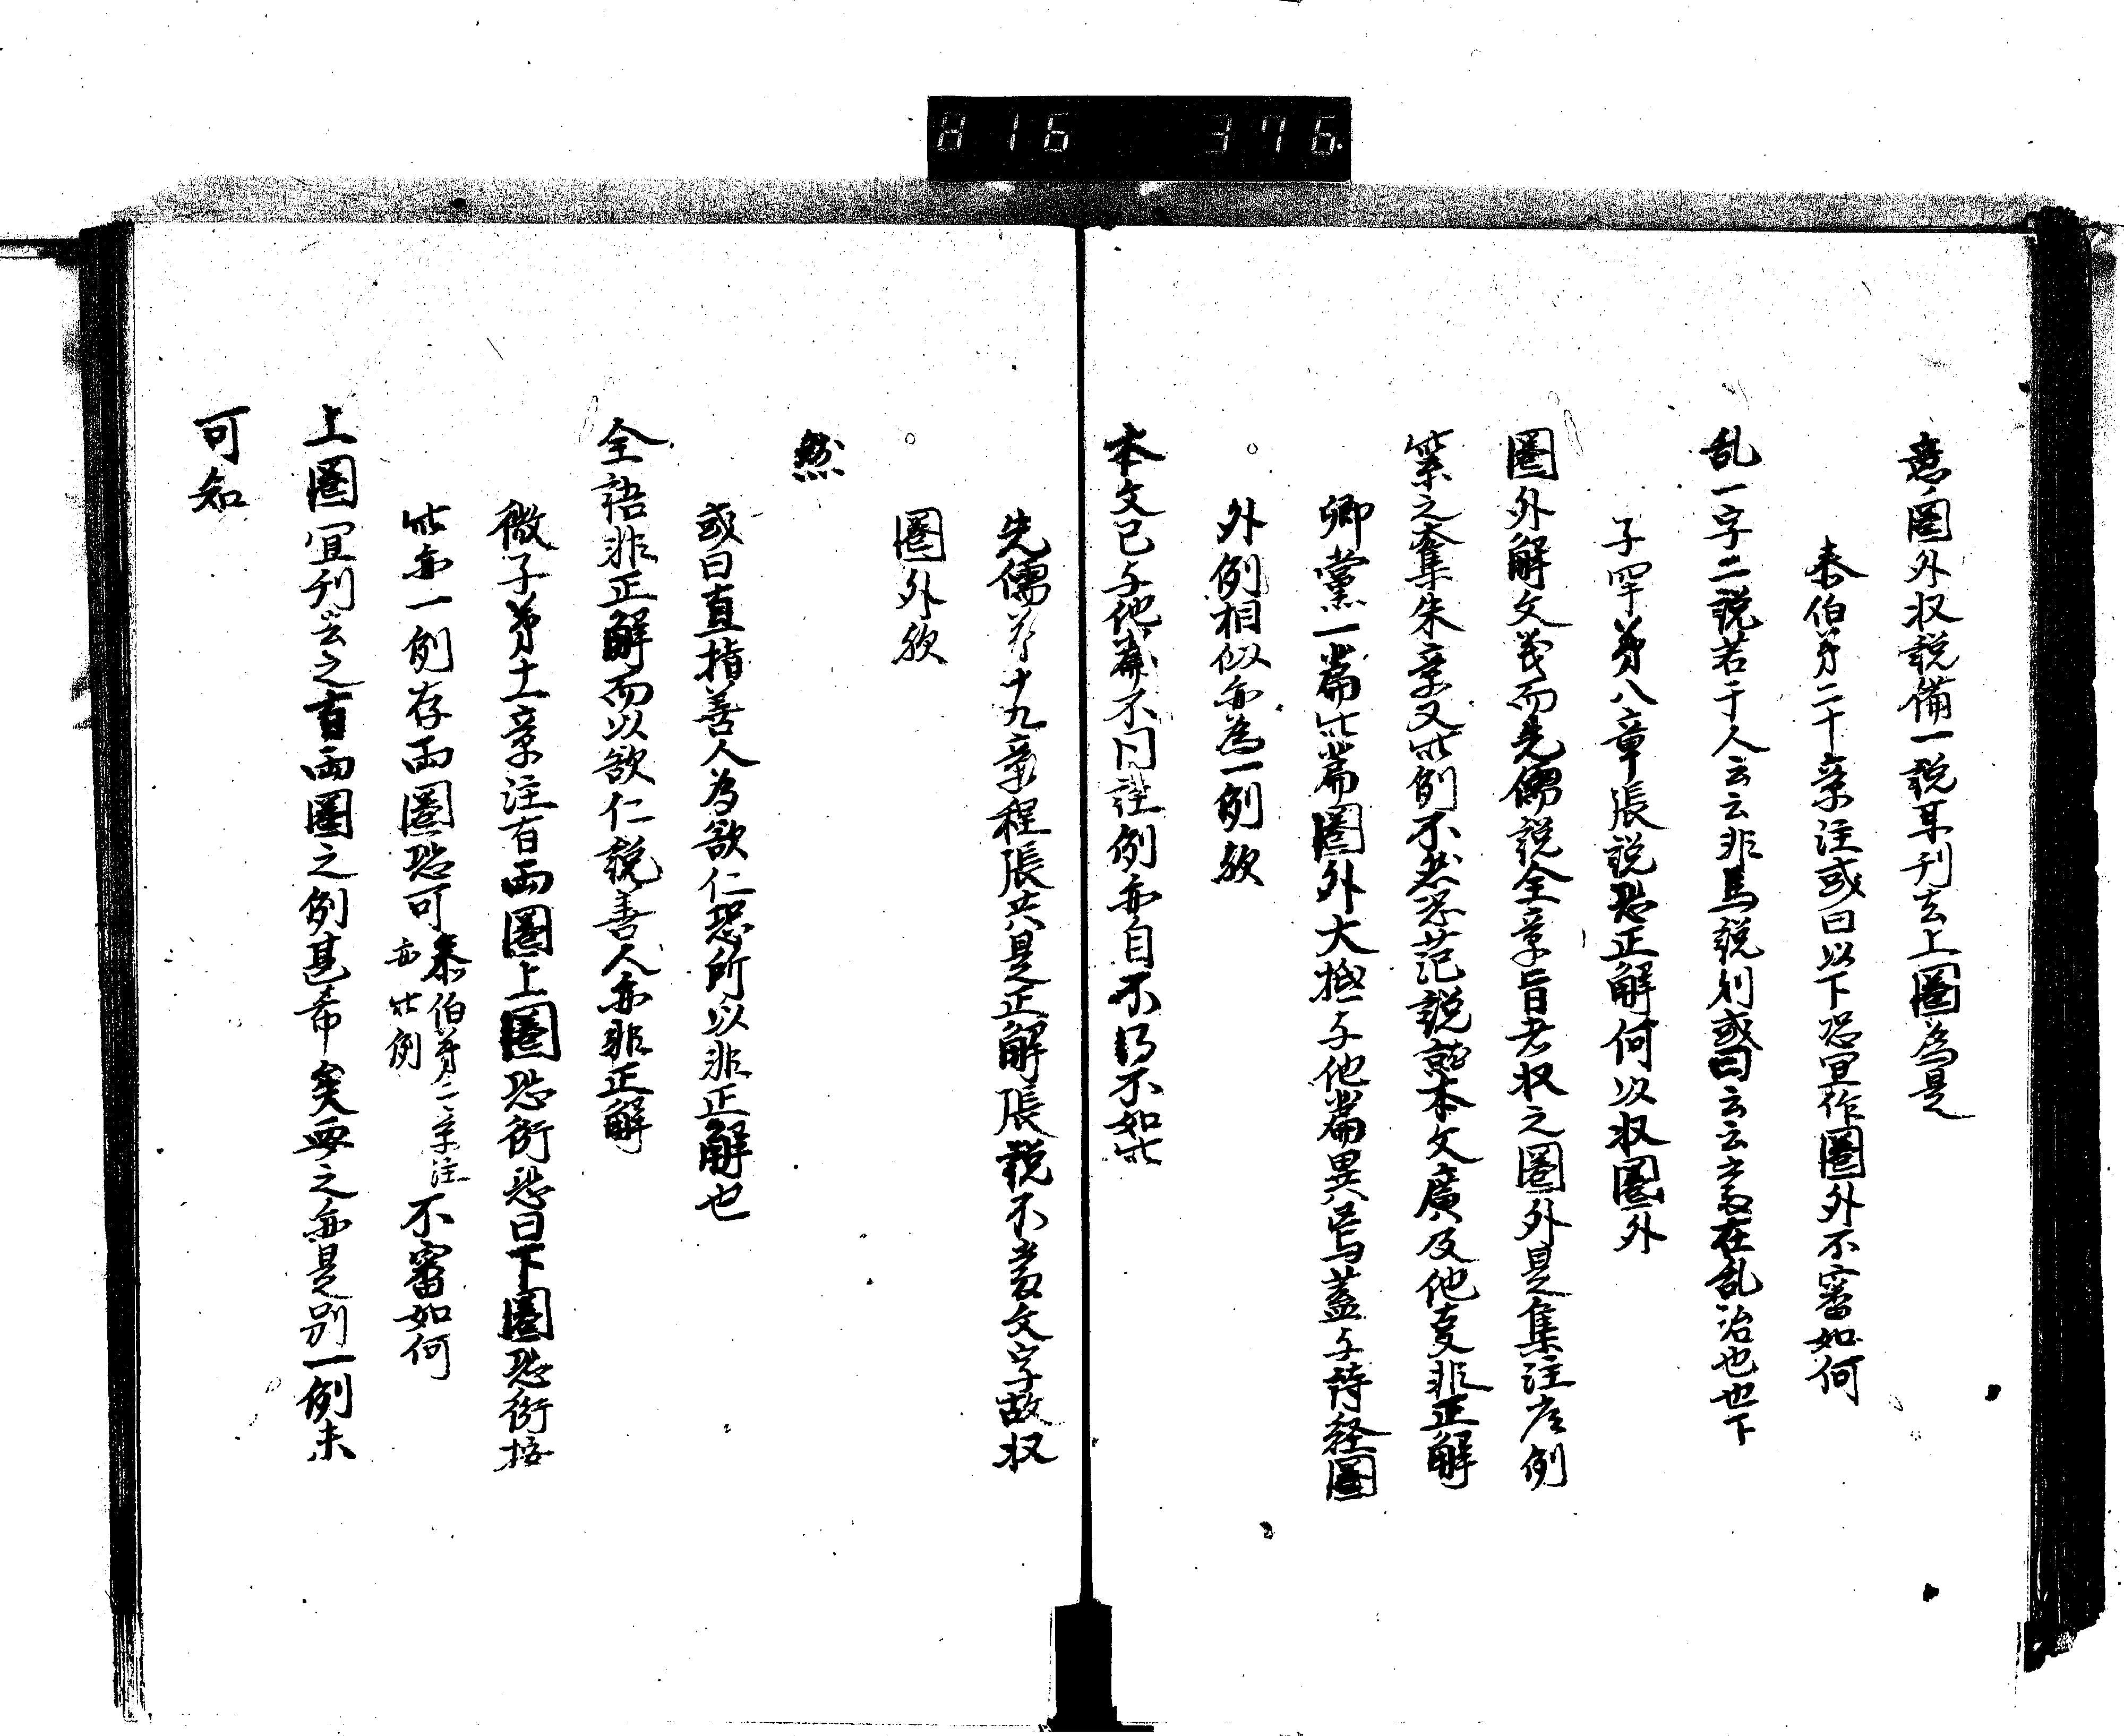 816 376
意圏外収説備一説耳刊去上圏為是
泰伯第二十章注或曰以下恐宜作圏外不審如何
乱一字二説若于人云云非馬説則或曰云云之意在乱治也也下
子罕第八章張説恐正解何以収圏外
圏外解文義而先儒説全章旨者収之圏外是集注定例
第之奪朱章又此例不然恐范説就本文廣及他支非正解
郷黨一篇此篇圏外大抵与他篇異焉蓋与詩経圏
外例相似亦為一例歟
本文已与他篇不同註例亦自不得不如此
先儒第十九章程張共是正解張説不主文字故収
圏外歟
然
或曰直指善人為欲仁恐所以非正解也
全語非正解而以欲仁説善人亦非正解
微子第十一章注有両圏上圏恐衍恐曰下圏恐衍接
此亦一例存両圏恐可泰伯第二章注亦此例不審如何
上圏宜刊去之有両圏之例甚希矣要之亦是別一例未
可知